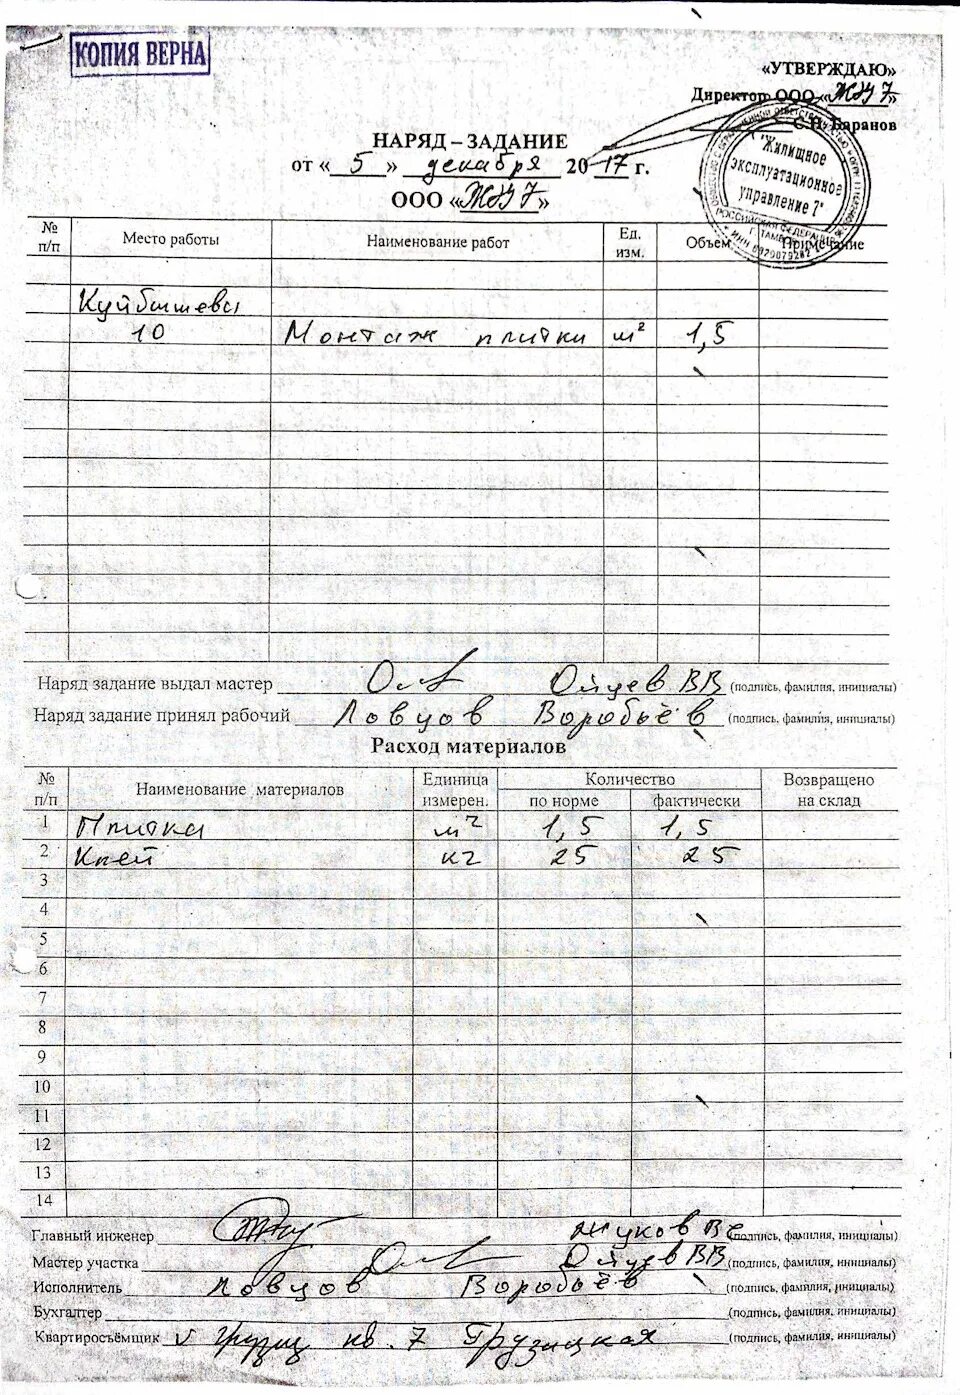 КОПИЯ ВЕРНА
«УТВЕРЖДАЮ»
Директор ООО «ЖЭУ 7»
С.Н. Баранов
"Жилищное
эксплуатационное
управление 7"
РОССИЙСКАЯ ФЕДЕРАЦИЯ
НАРЯД – ЗАДАНИЕ
от «5» декабря 2017 г.
ООО «ЖЭУ 7»
№ п/п Место работы Наименование работ Ед. изм. Объем Примечание
Куйбышева
10 Монтаж плитки м² 1,5
Наряд задание выдал мастер Ойцев ВВ (подпись, фамилия, инициалы)
Наряд задание принял рабочий Ловцов Воробьёв (подпись, фамилия, инициалы)
Расход материалов
№ п/п Наименование материалов Единица измерен. Количество Возвращено на склад
по норме фактически
1 Плитка м² 1,5 1,5
2 Клей кг 25 25
3
4
5
6
7
8
9
10
11
12
13
14
Главный инженер Жуков (подпись, фамилия, инициалы)
Мастер участка Ойцев ВВ (подпись, фамилия, инициалы)
Исполнитель Ловцов Воробьёв (подпись, фамилия, инициалы)
Бухгалтер (подпись, фамилия, инициалы)
Квартиросъёмщик кв. 7 Грузицкая (подпись, фамилия, инициалы)